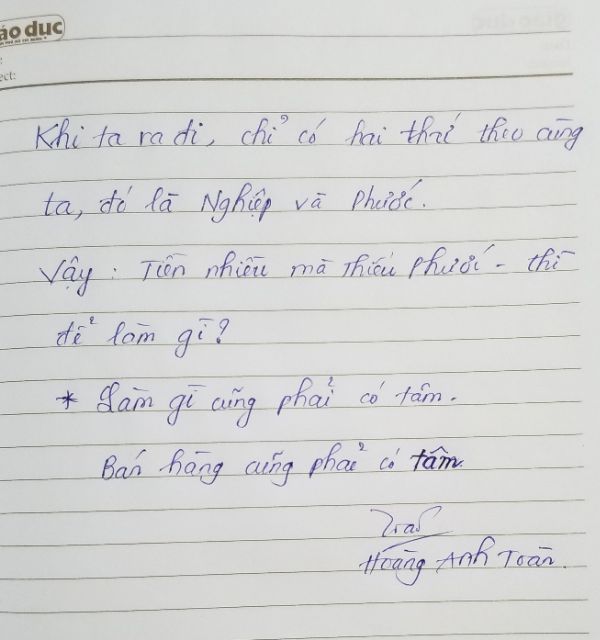 áo dục
ect:
Khi ta ra đi, chỉ có hai thứ theo cùng
ta, đó là Nghiệp và Phước.
Vậy : Tiền nhiều mà Thiếu Phước - thì
để làm gì?
* Làm gì cũng phải có tâm.
Bán hàng cũng phải có tâm
Hoàng Anh Toàn.